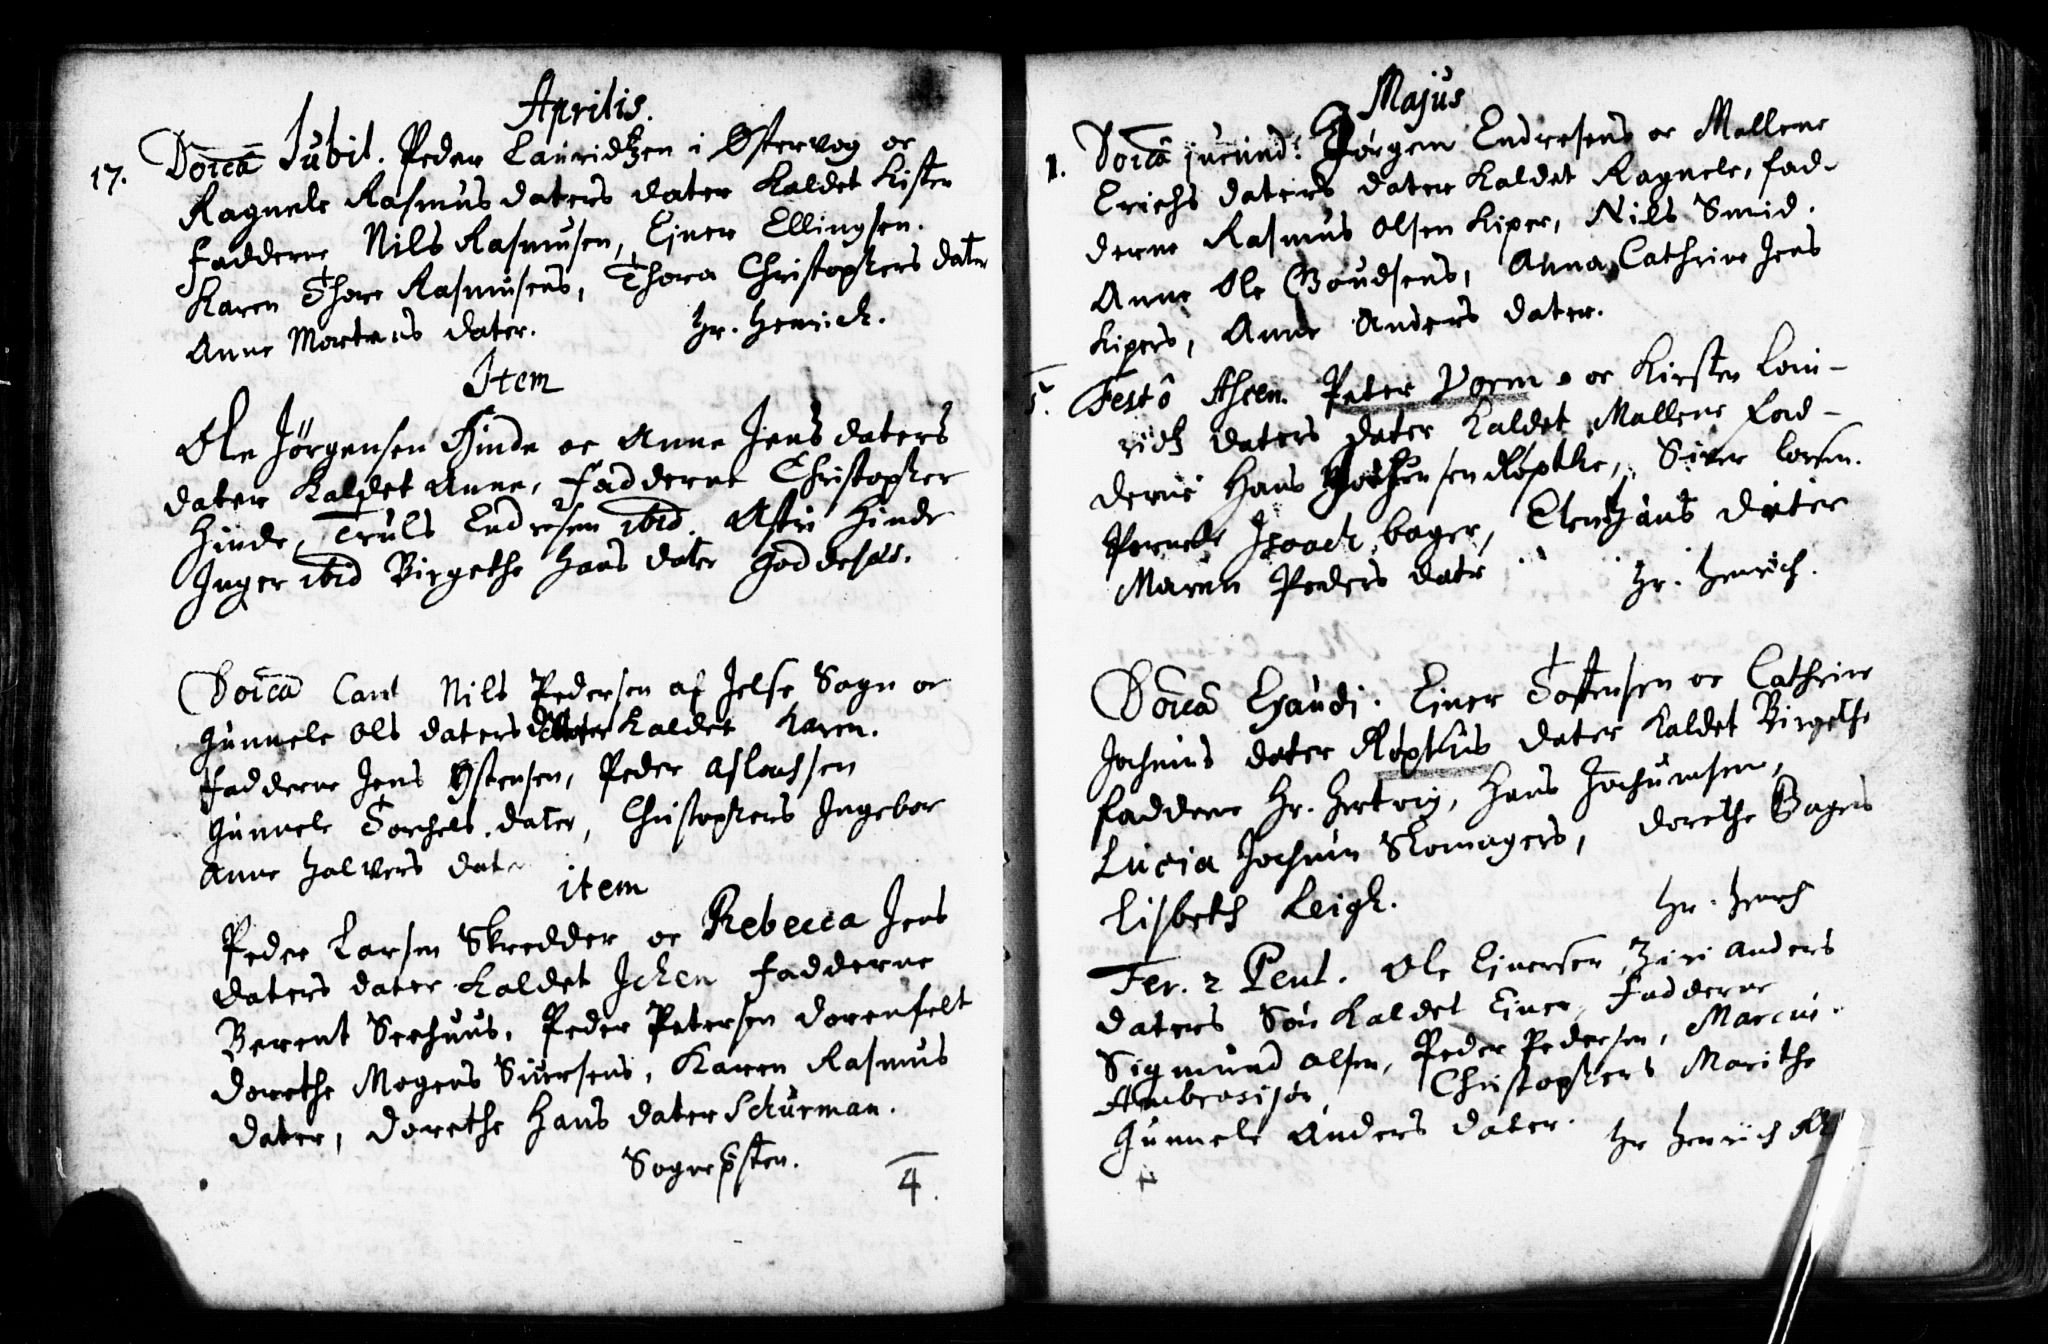 Aprilis.
17. Dõica Jubil. Peder Lauridtzen i Østervog oc
Ragnele Rasmus daters dater kaldet Kisten
Fadderne Nils Rasmusen, Ejner Ellingsen.
Karen Thore Rasmusens, Thora Christophers dater
Anne Martens dater. Hr. Henrich.
Item
Ole Jørgensen Hinde oc Anne Jens daters
dater kaldet Anne, Fadderne Christopher
Hinde, Truls Endresen ibid. Astri Hinde
Inger ibid Birgethe Hans dater
Doica Cant Nils Pedersen af Jelse Sogn oc
Gunnele Ols daters dater kaldet Karen.
Fadderne Jens Østensen, Peder Aslachsen
Gunnele Torchels dater, Christophers Ingebor
Anne Halvers dater
item
Peder Larsen Skredder oc Rebecca Jens
daters dater kaldet Icken Fadderne
Berent Seehuus, Peder Petersen Dorenfelt
Dorethe Mogens Siversens, Karen Rasmus
dater, Dorethe Hans dater Schurman.
Sogne
4.
Majus
1. Doica jucund: Jørgen Endresens oc Mallene
Erichs daters dater kaldet Ragnele, fad-
derne Rasmus Olsen Kiper, Nils Smid.
Anne Ole Goudsens, Anna Cathrine Jens
Kipers, Anne Anders dater.
5. Festo Ascen. Peter Vorm oc Kirsten Lau-
ridtz daters dater kaldet Mallene Fad-
derne Hans Røptke, Siver Lorsen.
Pernele Isaach bager, Elen Hans dater
Maren Peders datr Hr. Henrich.
Doica Exaudi. Ejner Tostensen oc Cathrine
Jochims dater Røptkis dater kaldet Birgethe
Faddere Hr. Hertvig, Hans Jochumsen,
Lucia Jochim Skomagers, Dorethe Bagers
Lisbeth Leigh. Hr. Henrich
Fer. 2 Pent. Ole Ejnersen, Ziri Anders
daters Søn kaldet Einer, Fadderne
Sigmund Olsen, Peder Pedersen, Marcus
Ambrosisøn, Christophers Marithe
Gunnele Anders dater. Hr Henrich